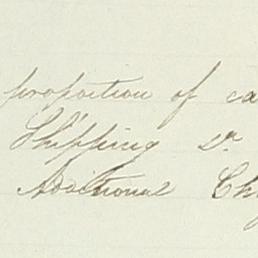 proportion of ca
Shipping Dr
Additional Ch